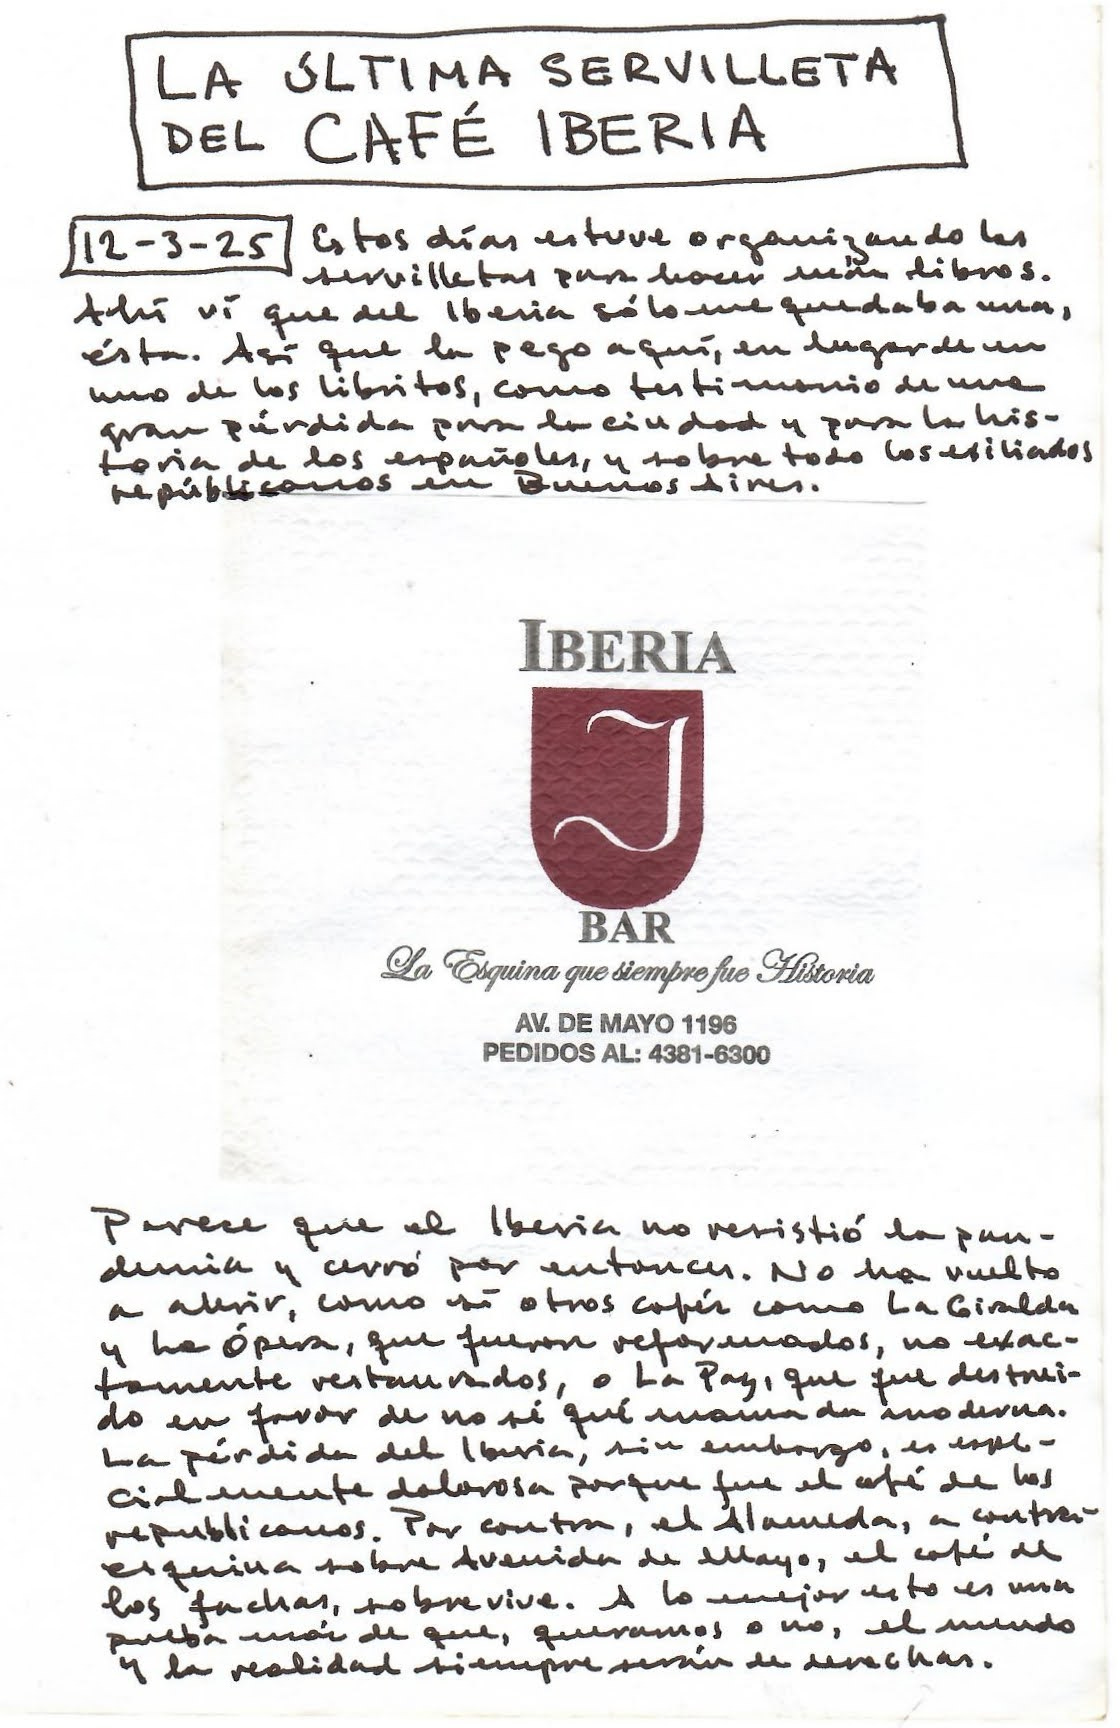 LA ÚLTIMA SERVILLETA
DEL CAFÉ IBERIA
12-3-25 Estos días estuve organizando las
servilletas para hacer más libros.
Ahí ví que del Iberia sólo me quedaba una,
ésta. Así que la pego aquí, en lugar de en
uno de los libritos, como testimonio de una
gran pérdida para la ciudad y para la his-
toria de los españoles, y sobre todo los exiliados
republicanos en Buenos Aires.
IBERIA
I
BAR
La Esquina que siempre fue Historia
AV. DE MAYO 1196
PEDIDOS AL: 4381-6300
Parece que el Iberia no resistió la pan-
demia y cerró por entonces. No ha vuelto
a abrir, como sí otros cafés como La Giralda
y La Ópera, que fueron reformados, no exac-
tamente restaurados, o La Paz, que fue destrui-
do en favor de no sé qué mamada moderna.
La pérdida del Iberia, sin embargo, es espe-
cialmente dolorosa porque fue el café de los
republicanos. Por contra, el Alameda, a contra-
esquina sobre Avenida de Mayo, el café de
los fachas, sobrevive. A lo mejor esto es una
pueba más de que, queramos o no, el mundo
y la realidad siempre serán de derechas.